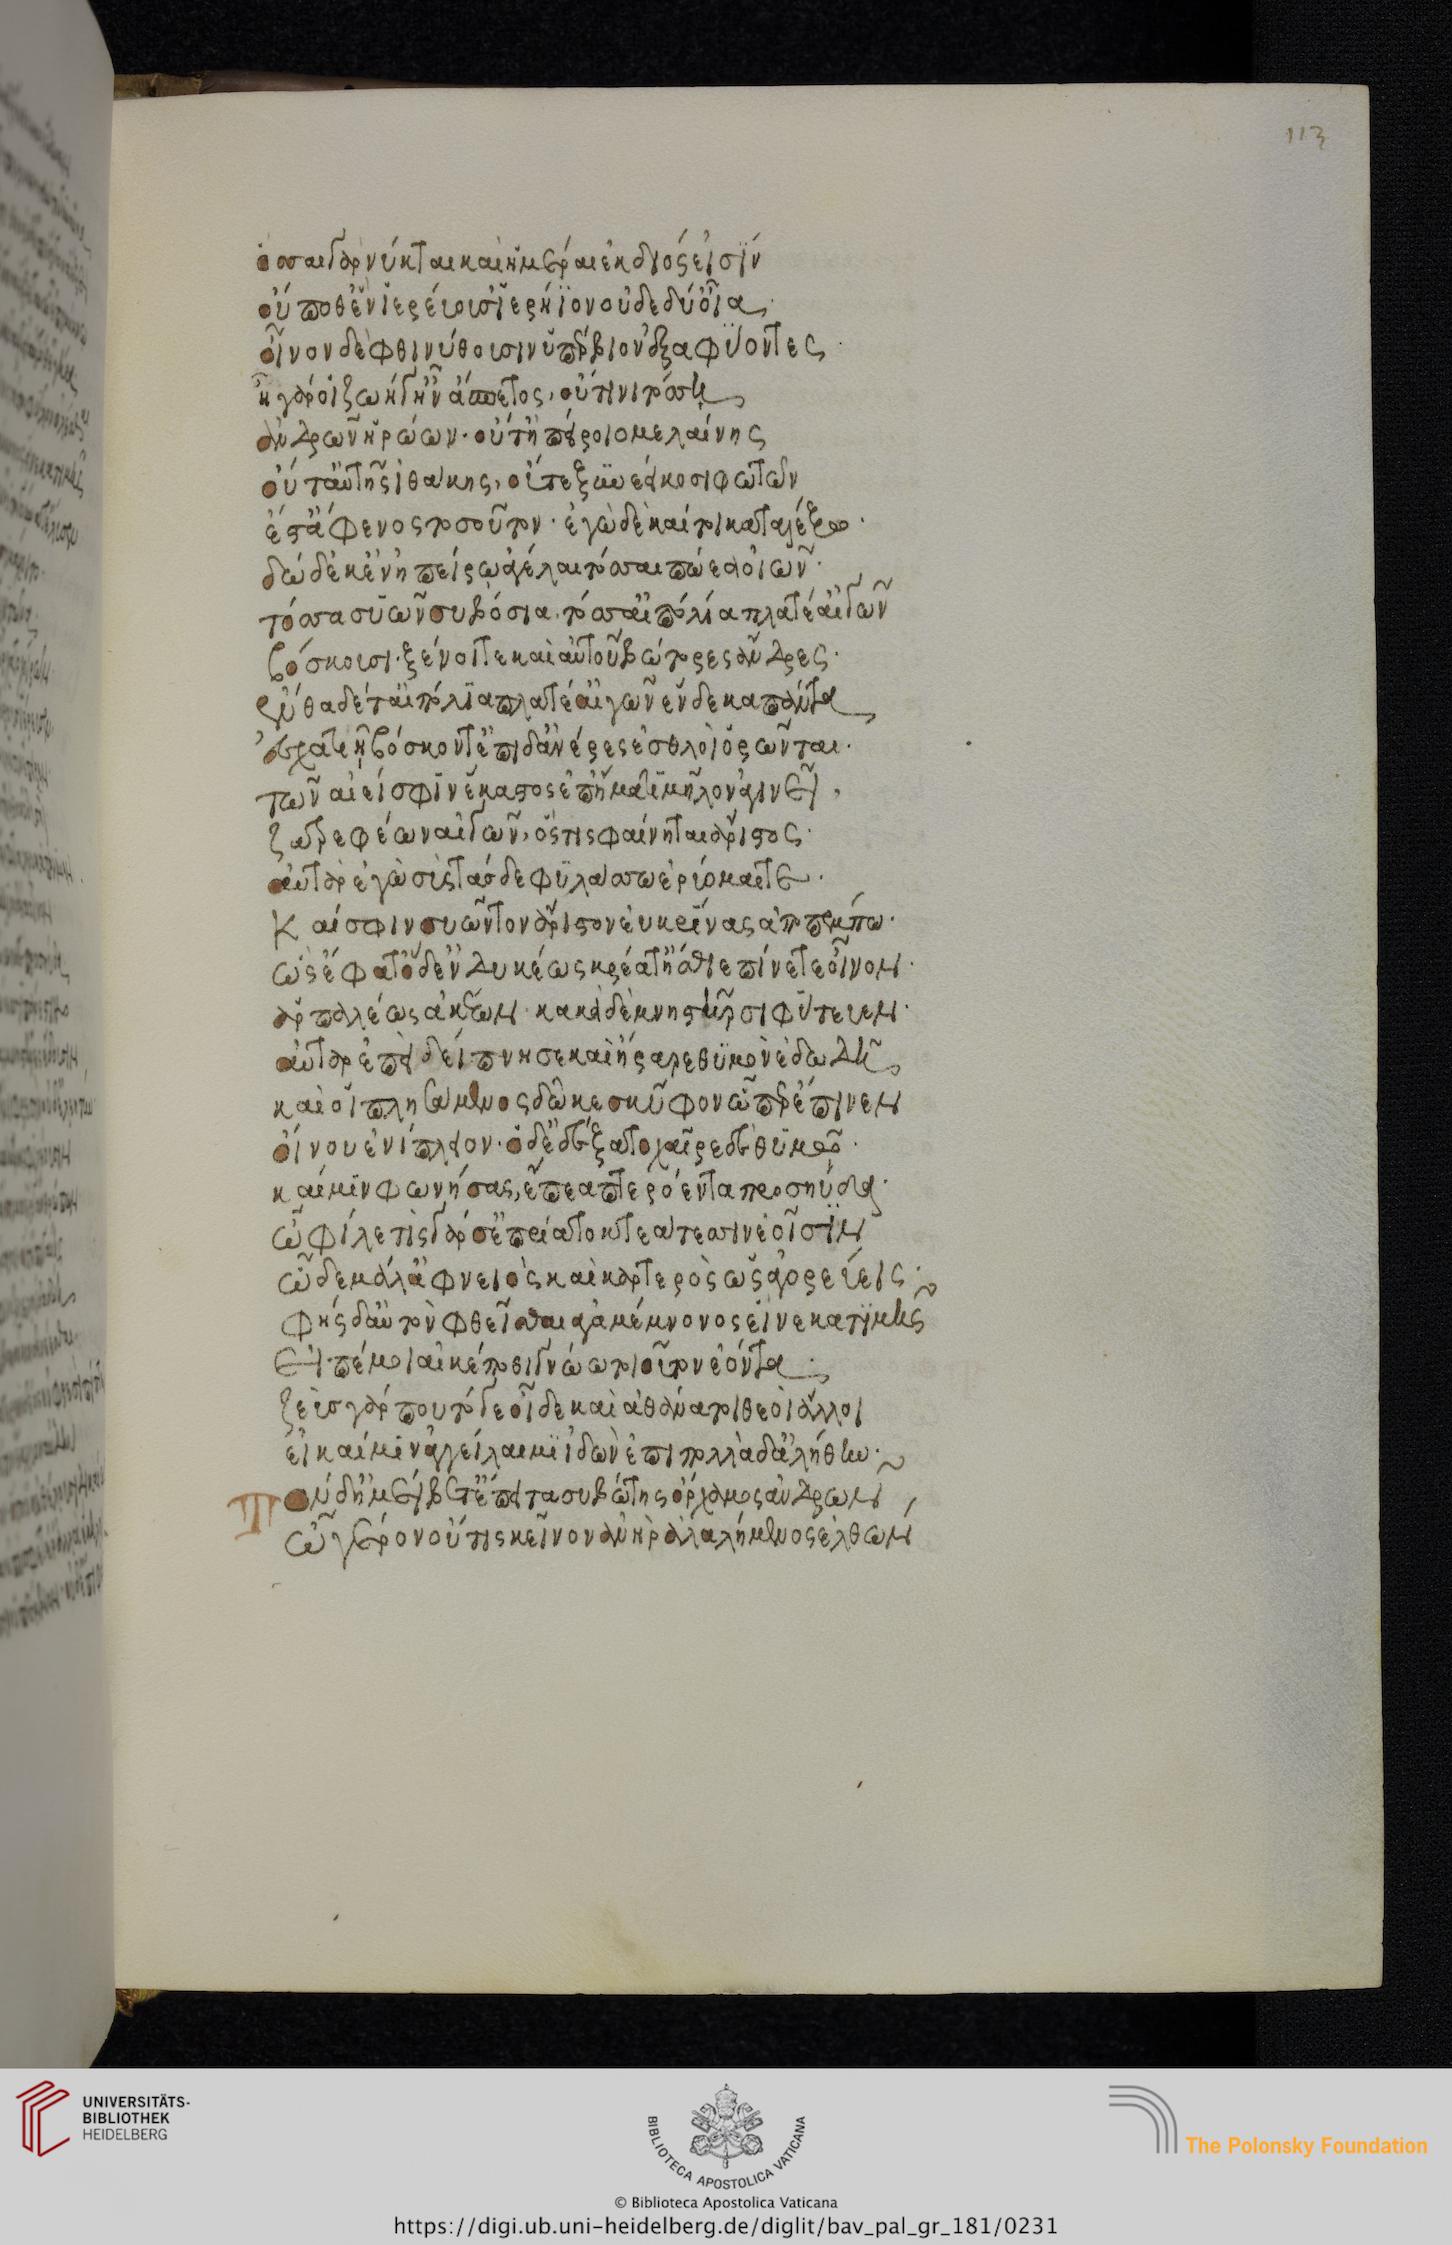 113
ὅσσαι γὰρ νύκται καὶ ἡμέραι ἐκ διός εἰσὶν
οὔ ποθ' ἓν ἱερεύουσ' ἱερήϊον οὐδὲ δύ' οἶα,
οἶνον δὲ φθινύθουσιν ὑπέρβιον ἐξαφύοντες·
ἦ γάρ οἱ ζωή γ' ἦν ἄσπετος, οὔτινι τόσση
ἀνδρῶν ἡρώων· οὔτ' ἠπείροιο μελαίνης
οὔτ' αὐτῆς ἰθάκης, οὔτε ξυνεείκοσι φωτῶν
ἔστ' ἄφενος τοσοῦτον· ἐγὼ δέ καί τοι καταλέξω·
δώδεκ' ἐν ἠπείρω ἀγέλαι τόσσαι πώεα οἰῶν·
τόσσα συῶν συβόσια, τόσ' αἰπόλια πλατέ' αἰγῶν
βόσκουσι· ξεῖνοί τε καὶ αὐτοῦ βώτορες ἄνδρες·
ἐνθάδε τ' αἰπόλια πλατέ' αἰγῶν ἕνδεκα πάντα
ἐσχατιῇ βόσκοντ' ἐπὶ δ' ἀνέρες ἐσθλοὶ ὄρωνται·
τῶν αἰεί σφιν ἕκαστος ἐπ' ἤματι μῆλον ἀγινεῖ,
ζατρεφέων αἰγῶν, ὅστις φαίνηται ἄριστος·
αὐτὰρ ἐγὼ σῦς τάσδε φυλάσσω ἐρύομαί τε·
καί σφιν συῶν τὸν ἄριστον ἐυκρίνας ἀποπέμπω·
ὣς ἔφατ' ὁ δ' ἐνδυκέως κρέα τ' ἤσθιε πῖνέ τε οἶνον·
ἁρπαλέως ἀκέων κακὰ δὲ μνηστῆρσι φύτευεν·
αὐτὰρ ἐπεὶ δείπνησε καὶ ἤραρε θυμὸν ἐδωδῇ
καί οἱ πλησάμενος δῶκε σκύφον ὧπερ ἔπινεν
οἴνου ἐνίπλειον· ὁ δ' ἐδέξατο χαῖρε δὲ θυμῶ·
καί μιν φωνήσας, ἔπεα πτερόεντα προσηύδα·
ὦ φίλε τίς γάρ σ' ἐπρίατο κτεάτεσσιν ἑοῖσιν
ὧδε μάλ' ἀφνειὸς καὶ καρτερὸς ὡς ἀγορεύεις·
φῂς δ' αὐτὸν φθεῖσθαι ἀγαμέμνονος εἵνεκα τιμῆς
εἰπέ μοι αἴ κέ ποθι γνώω τοιοῦτον ἐόντα·
ζεὺς γάρ που τόγε οἶδε καὶ ἀθάνατοι θεοὶ ἄλλοι
εἰ καί μιν ἀγγείλαιμι ἰδών ἐπὶ πολλὰ δ' ἀλήθην·
Τ
ὸν δ' ἠμείβετ' ἔπειτα συβώτης ὄρχαμος ἀνδρῶν,
ὦ γέρον οὔτις κεῖνον ἀνὴρ ἀλαλήμενος ἐλθὼν
UNIVERSITÄTS-
BIBLIOTHEK
HEIDELBERG
BIBLIOTECA APOSTOLICA VATICANA
© Biblioteca Apostolica Vaticana
The Polonsky Foundation
https://digi.ub.uni-heidelberg.de/diglit/bav_pal_gr_181/0231